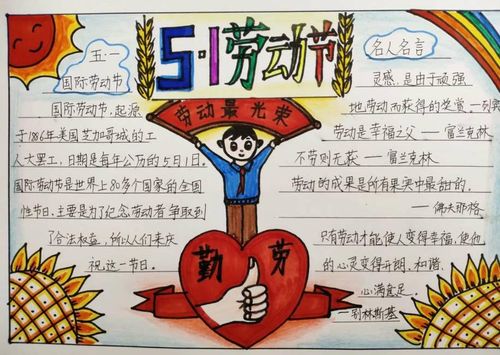 5·1劳动节
劳动最光荣
五·一
国际劳动节
国际劳动节,起源
于1886年美国芝加哥城的工
人大罢工,日期是每年公历的5月1日。
国际劳动节是世界上80多个国家的全国
性节日,主要是为了纪念劳动者争取到
了合法权益,所以人们来庆
祝这一节日。
勤劳
名人名言
灵感,是由于顽强
地劳动而获得的奖赏—列宾
劳动是幸福之父—富兰克林
不劳则无获—富兰克林
劳动的成果是所有果实中最甜的。
—佛夫那格
只有劳动才能使人变得幸福,使他
的心灵变得开朗、和谐、
心满意足。
—别林斯基